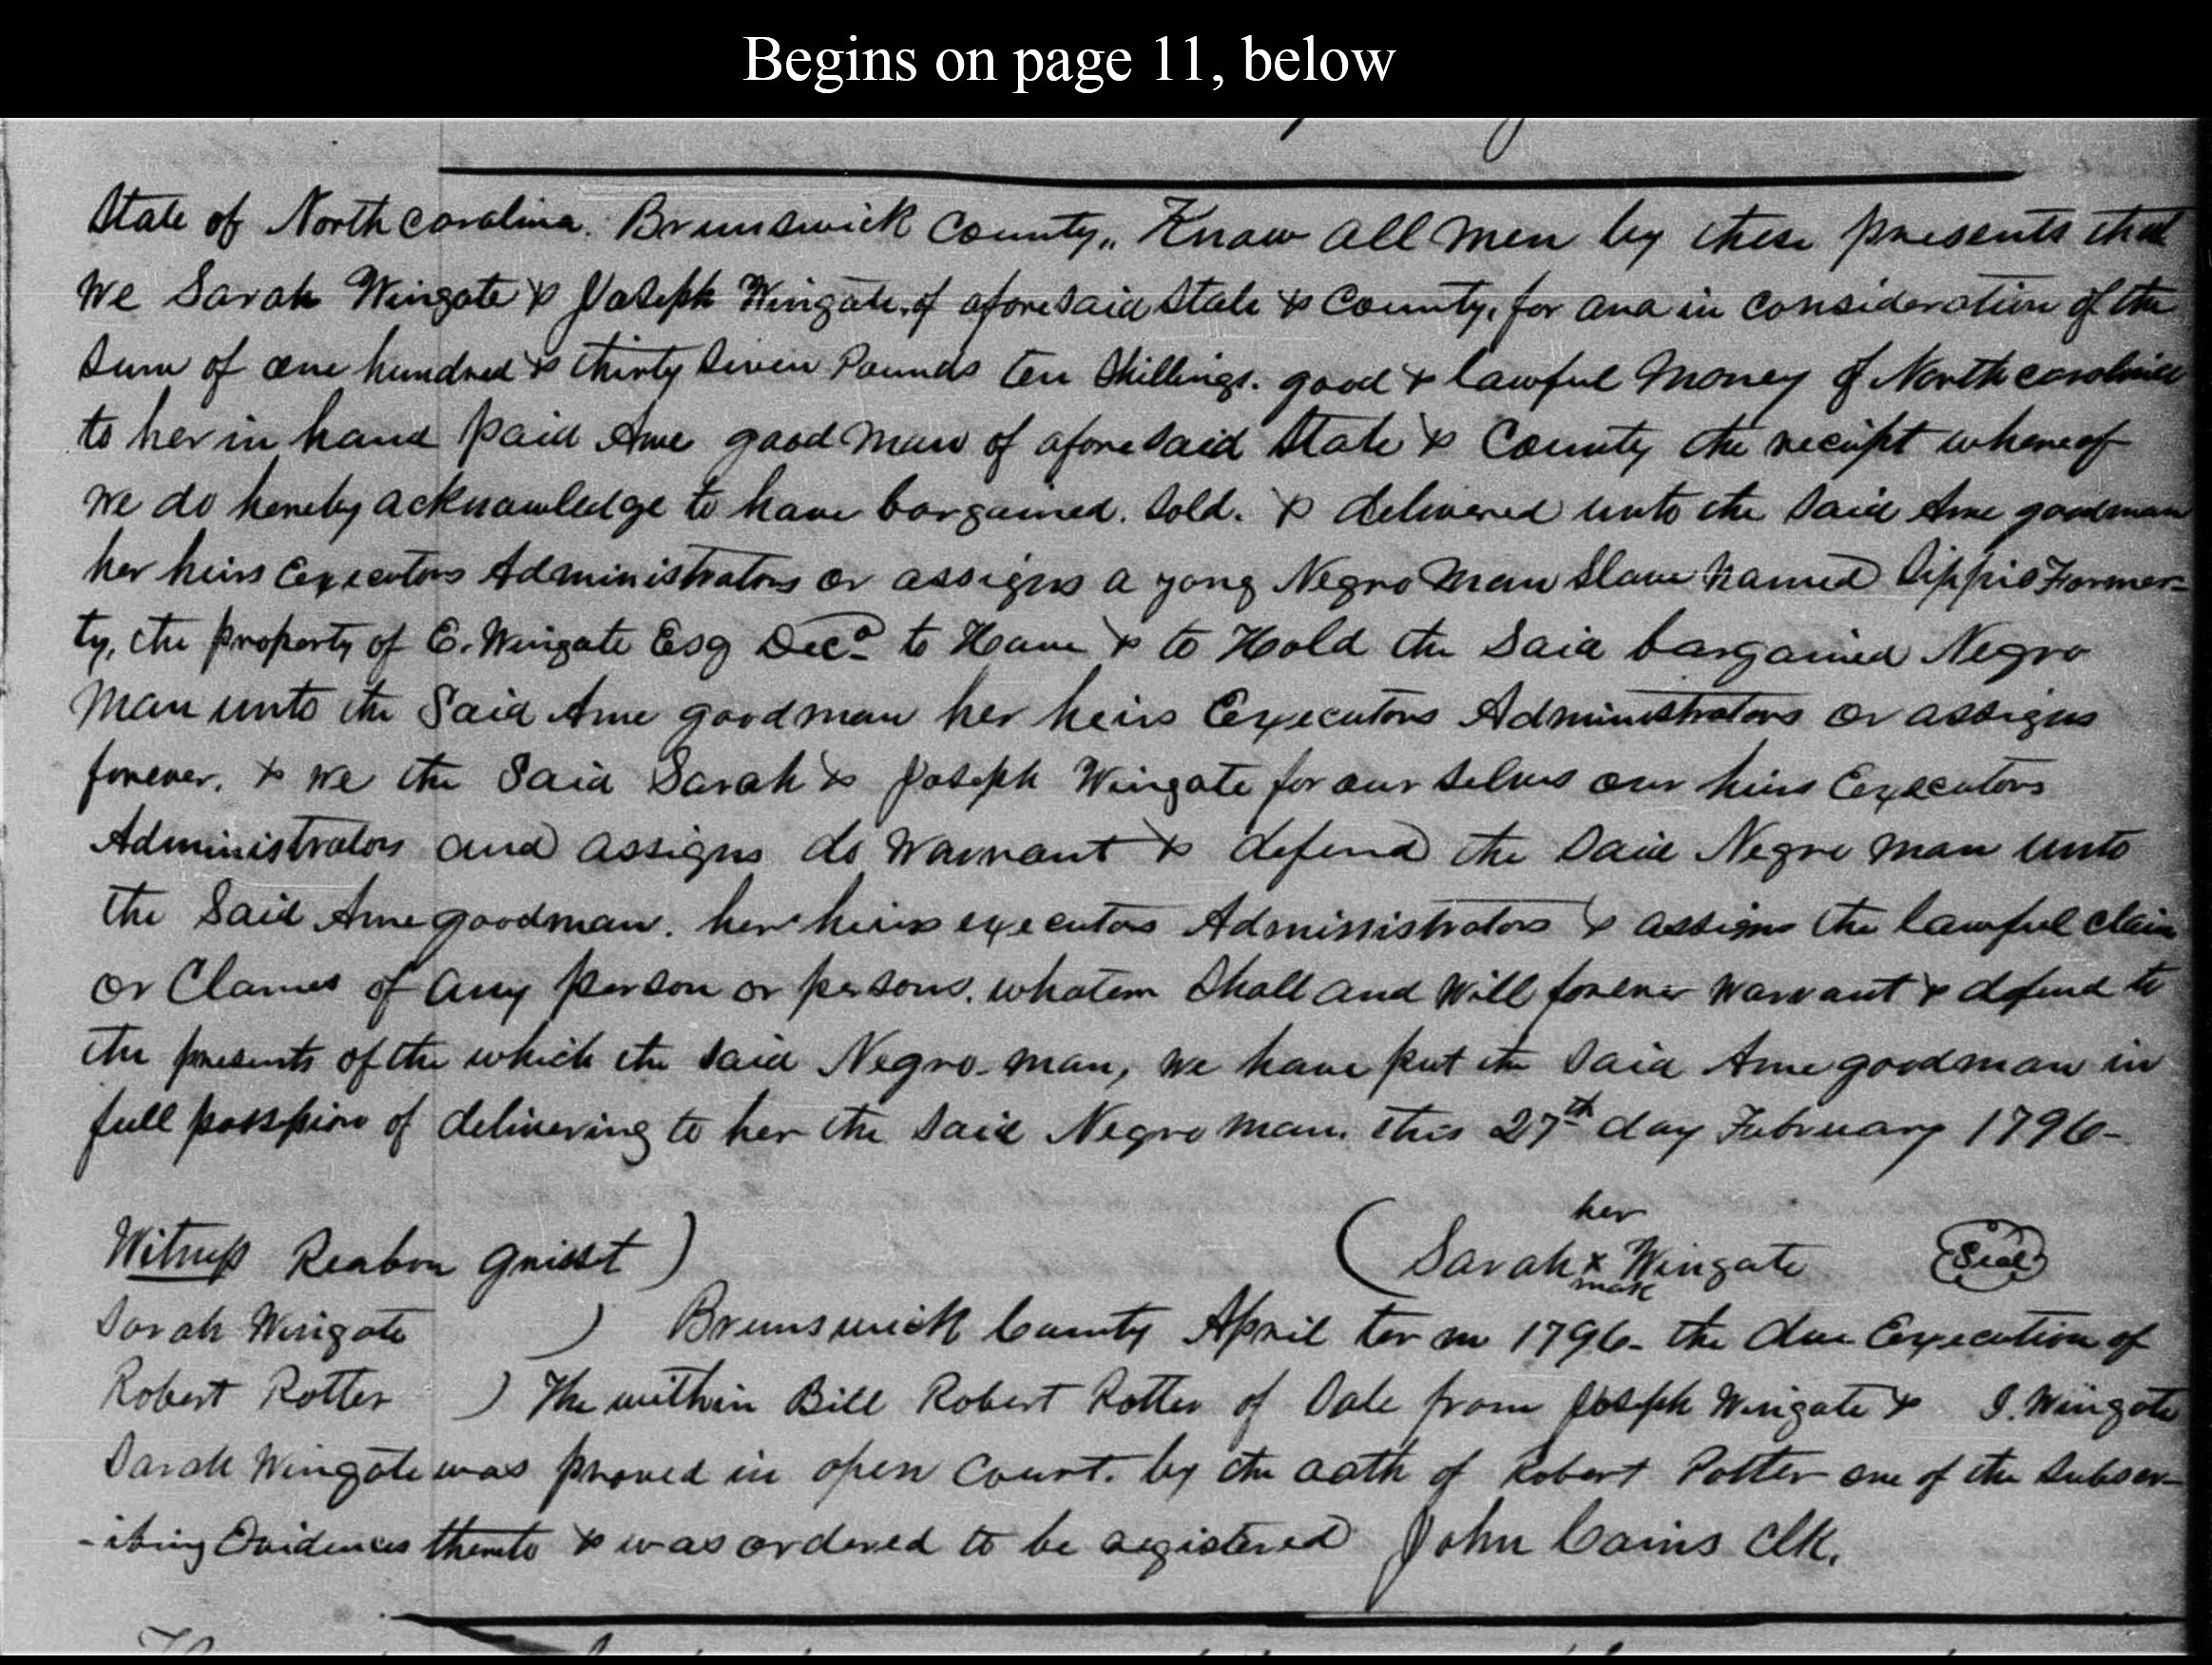 Begins on page 11, below
State of North carolina. Brunswick County,, Know all men by these presents that
We Sarah Wingate & Joseph Wingate, of aforesaid State & County, for and in consideration of the
Sum of one hundred & thirty Seven Pounds ten Shillings. good & lawful Money of North carolina
to her in hand paid Ame good man of aforesaid State & County the receipt whereof
we do hereby acknowledge to have bargained. Sold. & delivered unto the Said Ame goodman
her heirs Executors Administrators or assigns a yong Negro Man Slave Named Sippio Former-
ty, the property of E. Wingate Esq Decd to Have & to Hold the Said bargained Negro
Man unto the Said Ame goodman her heirs Executors Administrators or assigns
forever. & we the Said Sarah & Joseph Wingate for our Selves our heirs Executors
Administrators and assigns do Warrant & defend the Said Negro man unto
the Said Ame goodman. her heirs executors Administrators & assigns the lawful claim
or Clames of any person or persons. whatem Shall and Will forever Warrant & defend to
the presents of the which the Said Negro man, we have put the Said Ame goodman in
full possession of delivering to her the Said Negro man. this 27th day February 1796-
Witness Reabon grisset ) ( Sarah her x mark Wingate Seal
Sarah Wingate ) Brunswick County April term 1796- the due Execution of
Robert Rotter ) The within Bill Robert Rotter of Sale from Joseph Wingate & J. Wingate
Sarah Wingate was proved in open Court. by the oath of Robert Potter one of the Subscr-
-ibing Evidences thereto & was ordered to be registered John Cains Clk.